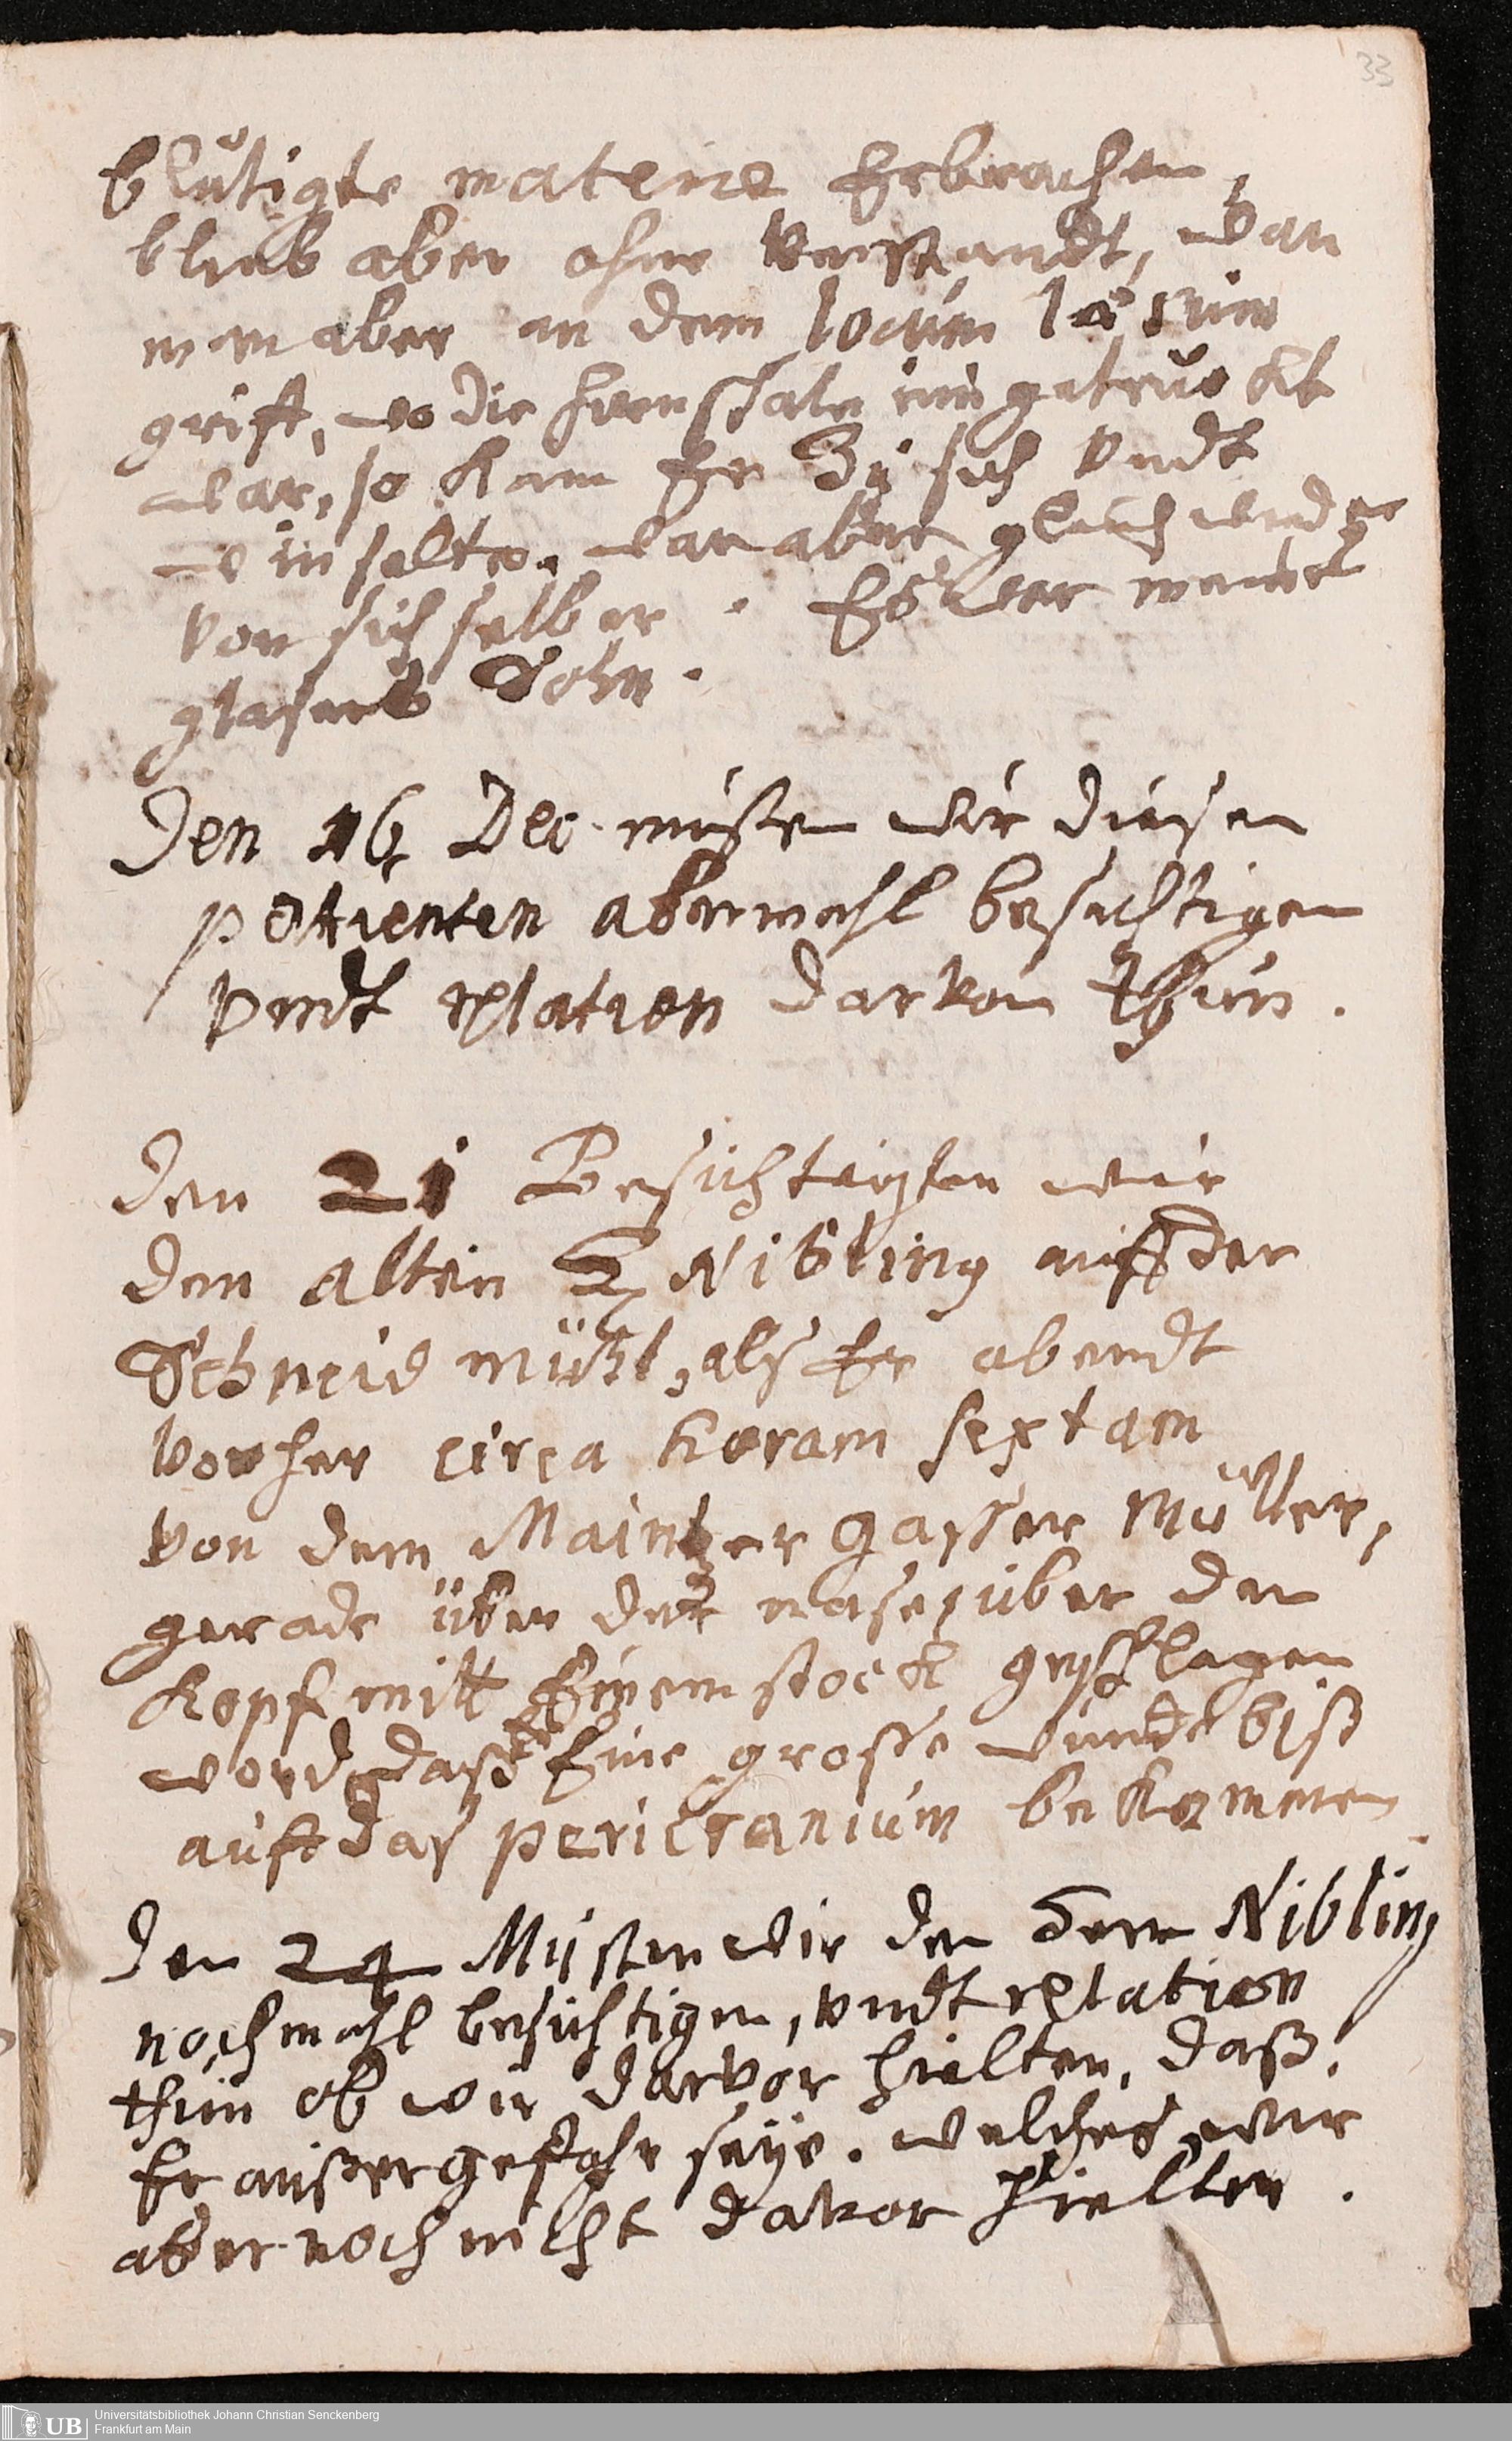 33
blutigte materie Erbrochen,
blieb aber ohne Verstandt, wan
man aber an dem locum læsum
grift, wo die hirnschale eingetruckt
war, so kam Er Zu sich Vndt
winselte. war aber gleich wieder
von sich selber. Es war meines
glasers Sohn.
Den 16 Dec. musten wir diesen
patienten abermahl besichtigen
Vndt relation darvon thun.
Den 21 Besichteigten wir
den alten H Nibling auff der
Schneid mühl, als Er abendt
vorher circa horam sextam
von dem Maintzer gasser Müller,
gerade über der nase, über den
Kopf mitt Einem stock geschlagen
word, daß er Eine grosse wunde biß
auff das pericranium bekommen.
Den 24 Musten wir den Herrn Nibling
nochmahl besichtigen, vndt relation
thun ob wir darvor hielten, daß
Er außer gefahr seye. welches wir
aber noch nicht davor hielten.
UB
Universitätsbibliothek Johann Christian Senckenberg
Frankfurt am Main